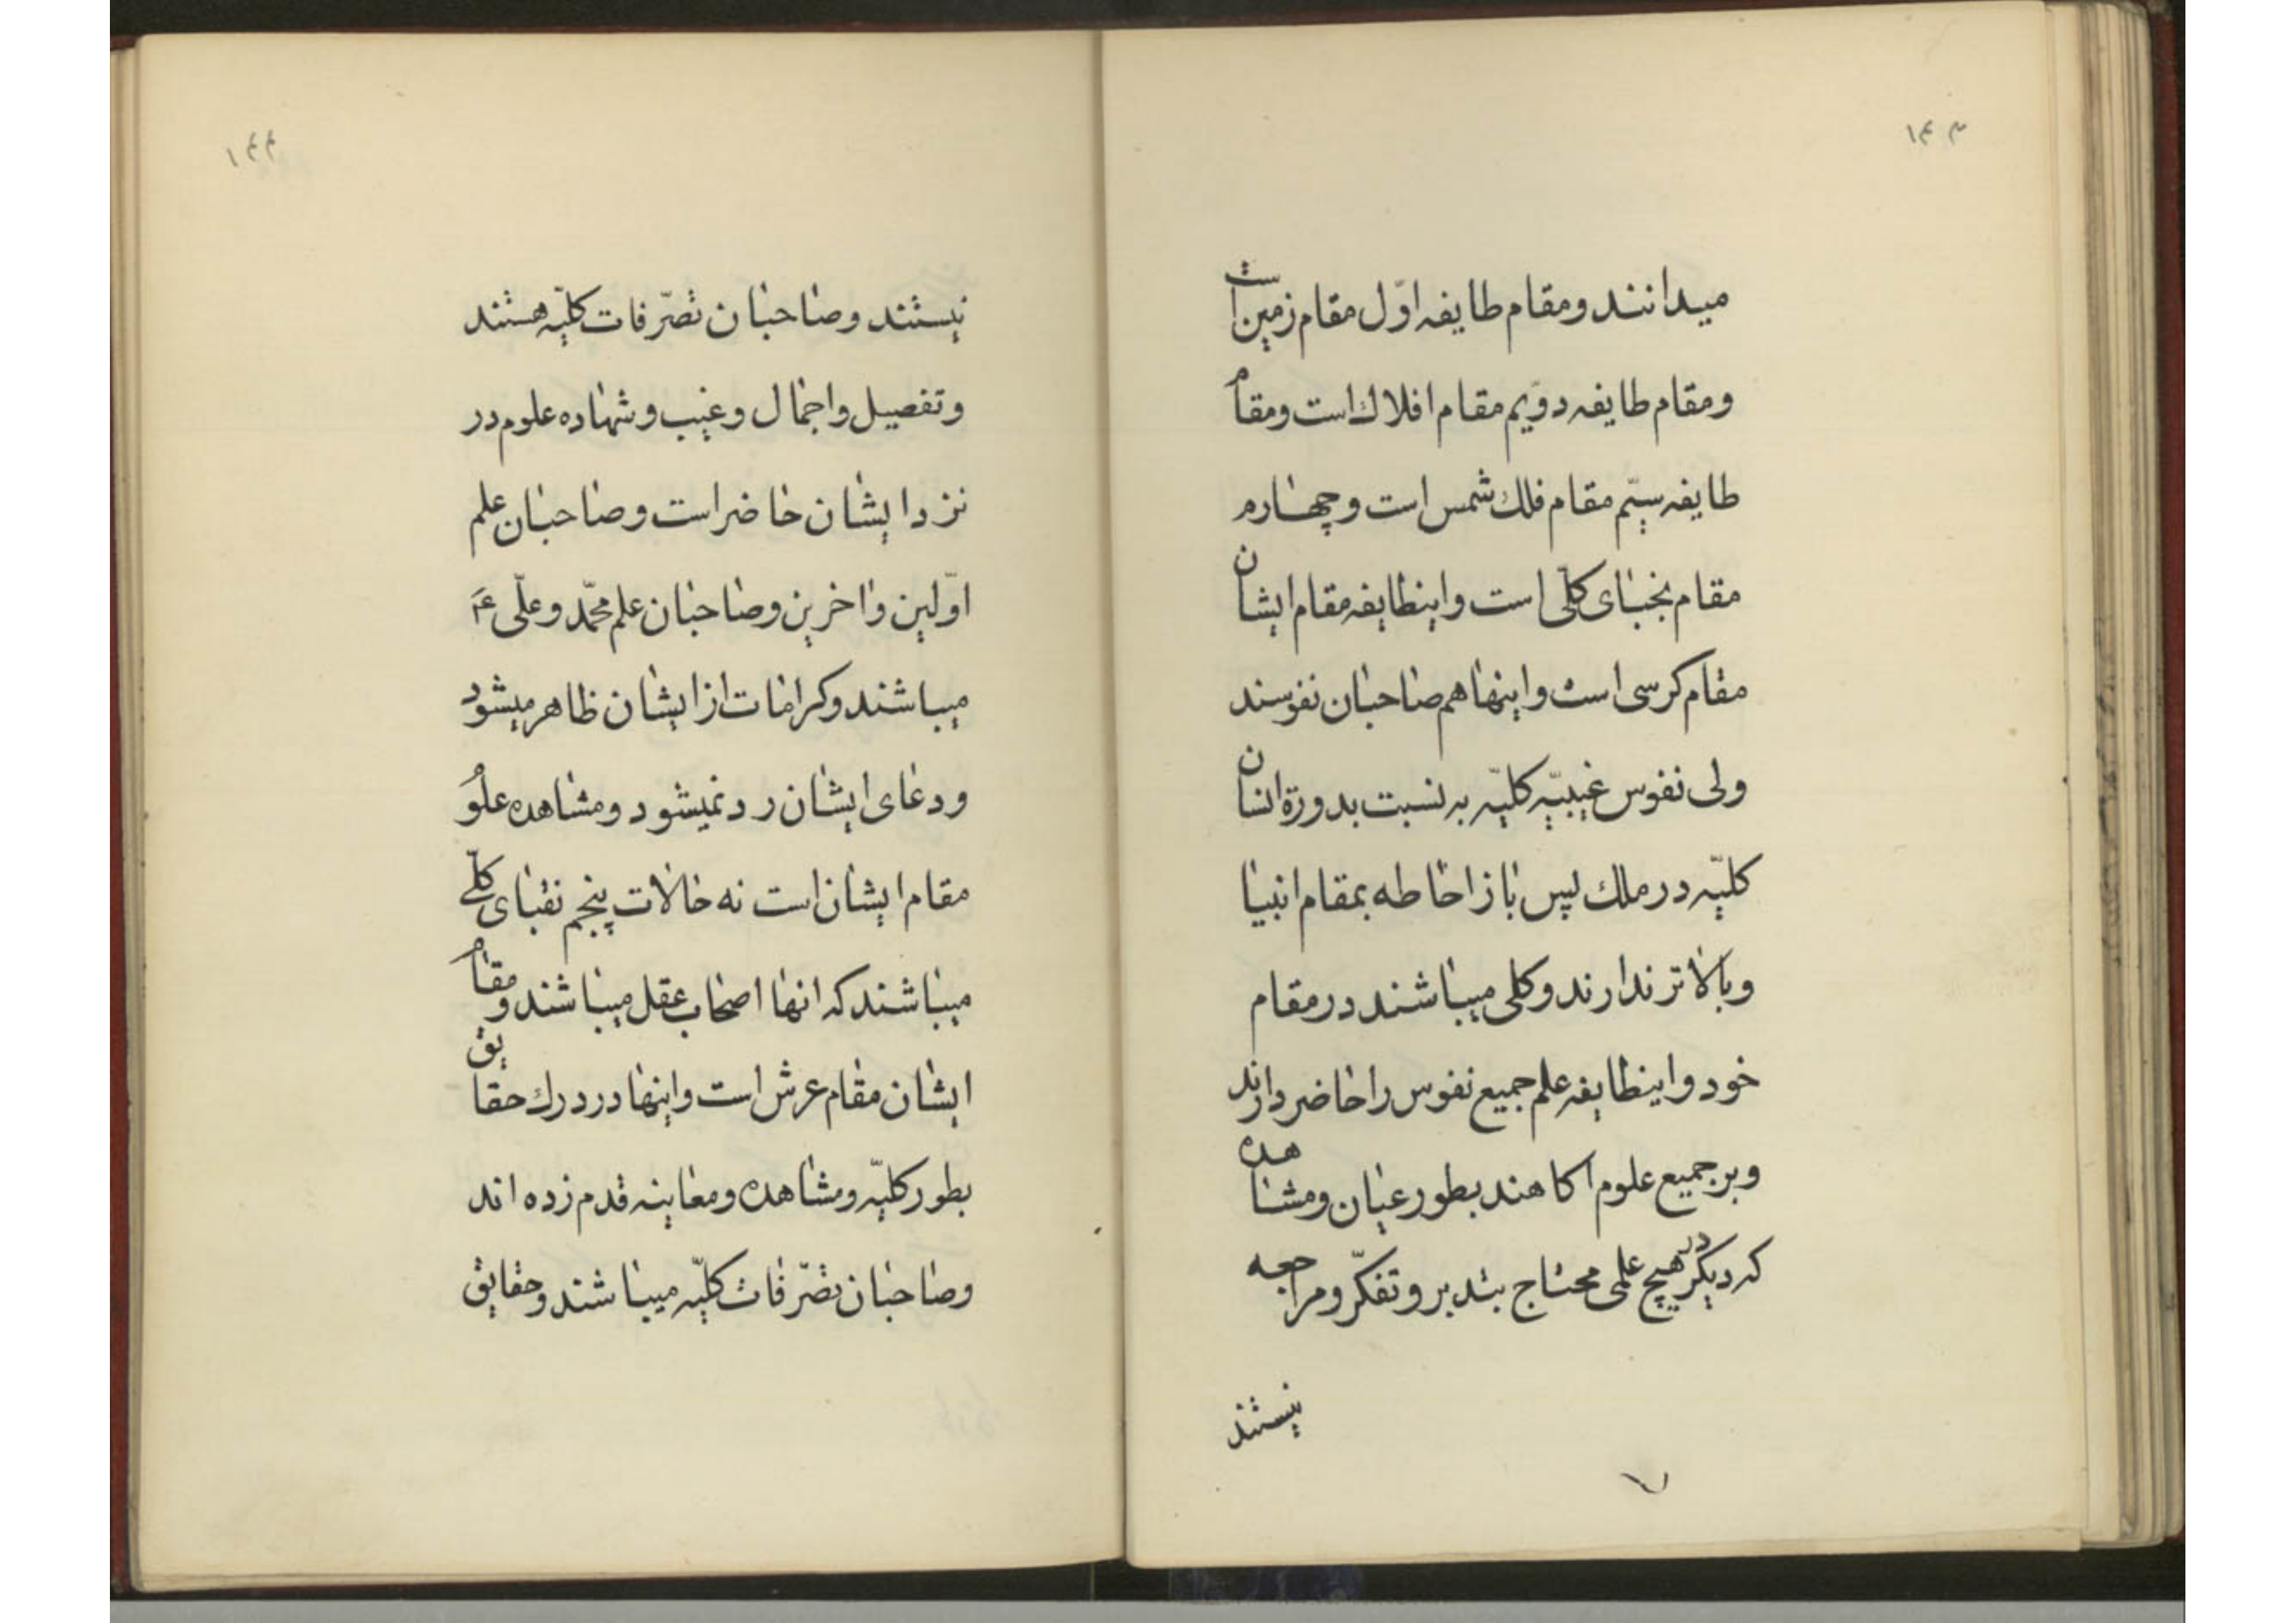 ۱۴۳
میدانند ومقام طایفه اوّل مقام زمین است
ومقام طایفه دوّیم مقام افلاك است ومقام
طایفه سیّم مقام فلك شمس است وچهارم
مقام نجبای کلّی است واینطایفه مقام ایشان
مقام کرسی است واینها هم صاحبان نفوسند
ولی نفوس غیبیّه کلیّه به نسبت بدورة انسان
کلیّه در ملك لپس باز احاطه بمقام انبیا
وبالا تر ندارند وکلی میباشند در مقام
خود واینطایفه علم جمیع نفوس را حاضر دارند
وبر جمیع علوم اکاهند بطور عیان ومشاهده
که دیکر در هیچ علمی محتاج بتدبر وتفکّر ومراجعه
نیستند
۱۴۴
نیستند وصاحبان تصّرفات کلیّه هستند
وتفصیل واجمال وغیب وشهاده علوم در
نزد ایشان حاضر است وصاحبان علم
اوّلین واخرین وصاحبان علم محمّد وعلّی ع
میباشند وکرامات از ایشان ظاهر میشود
ودعای ایشان رد نمیشود ومشاهده علُو
مقام ایشان است نه حالات پنجم نقبای کلّے
میباشند که انها اصحاب عقل میباشند ومقام
ایشان مقام عرش است واینها در درك حقایق
بطور کلیّه ومشاهده ومعاینه قدم زده اند
وصاحبان تصّرفات کلیّه میباشند وحقایق